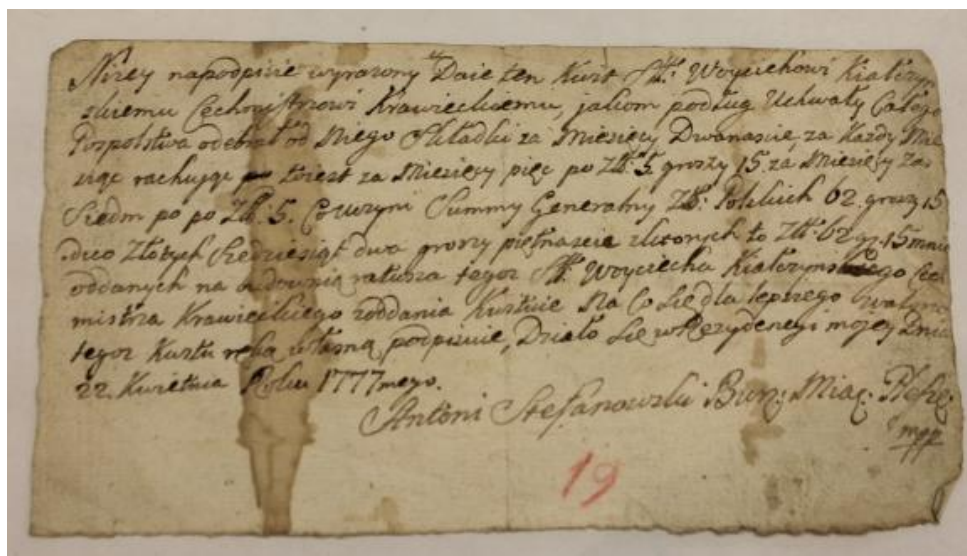 Nizey napodpisie wyrazony Daie ten Kwit Woyciechowi Kiałczyn
skiemu Cechmistrzowi Krawieckiemu, jakom podług Uchwały Całego
Pospolstwa odebrał od Niego Składki za Miesięcy Dwanascie, za Kazdy Mie
siąc rachując to iest za Miesięcy pięc po Zł: 5. groszy 15. za Miesięcy zas
Siedm po po Zł: 5. Co uczyni Summy Generalny Zł: Polskich 62. groszy 15
dico Złotych Szesdziesiąt dwa groszy piętnascie zliczonych to Zł: 62 gr. 15 mnie
oddanych na ratusza tegoz Woyciecha Kiałczynskiego Cech
mistrza Krawieckiego Kwituie Na Co Się dla lepszego waloru
tegoz Kwitu ręką własną podpisuie, Działo Się w Rezydencyi mojey Dnia
22. Kwietnia Roku 1777mego.
Antoni Stefanowski Bur: Mia:
mpp
19